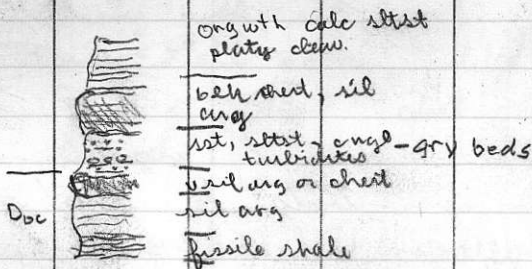 orng wth calc sltst
platy cleav.
blk chert, sil
arg
sst, sltst, cngl - gry beds
turbidites
v sil arg or chert
Doc
sil arg
fissile shale